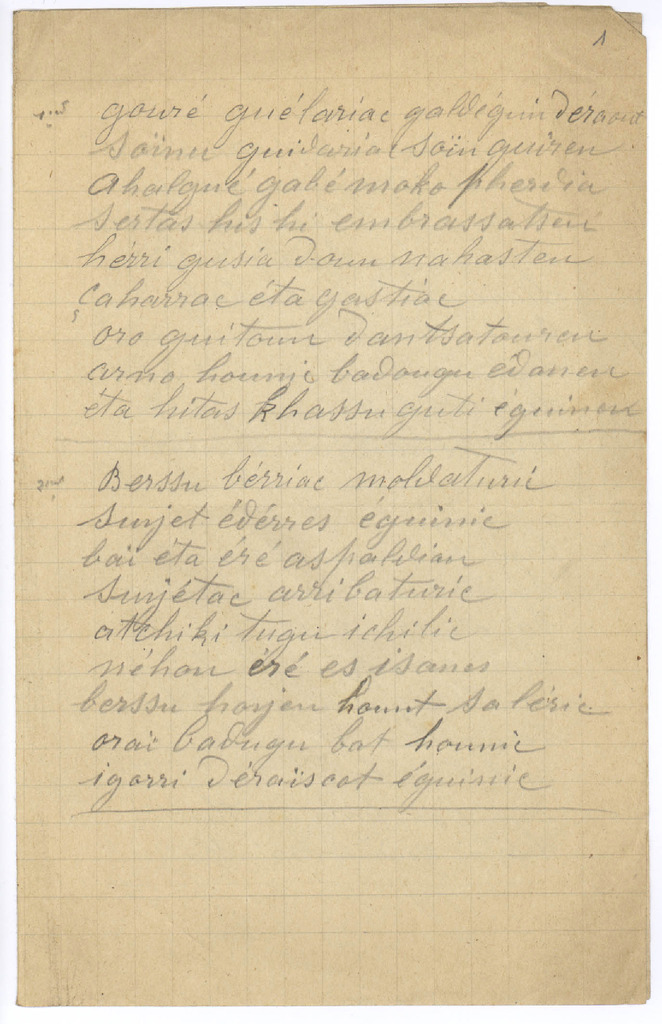 1
gouré guélariac galdéguin déraout
soïnu guidariac soïn guiren
ahalgué gabé moko pherdia
sertas his hi embrassatseu
hérri gusia doun nahasten
çaharrac éta gastiac
oro guitoun dantsatouren
arno hounic badougu édanen
éta hitas khassu guti éguinen
2nd Berssu bérriac moldaturic
sujet édérres éguinic
baï éta éré aspaldian
sujétac arribaturic
atchiki tugu ichilic
néhon éré es isanes
berssu horjen hount saléric
oraï badugu bat hounic
igorri déraïscot éguinic